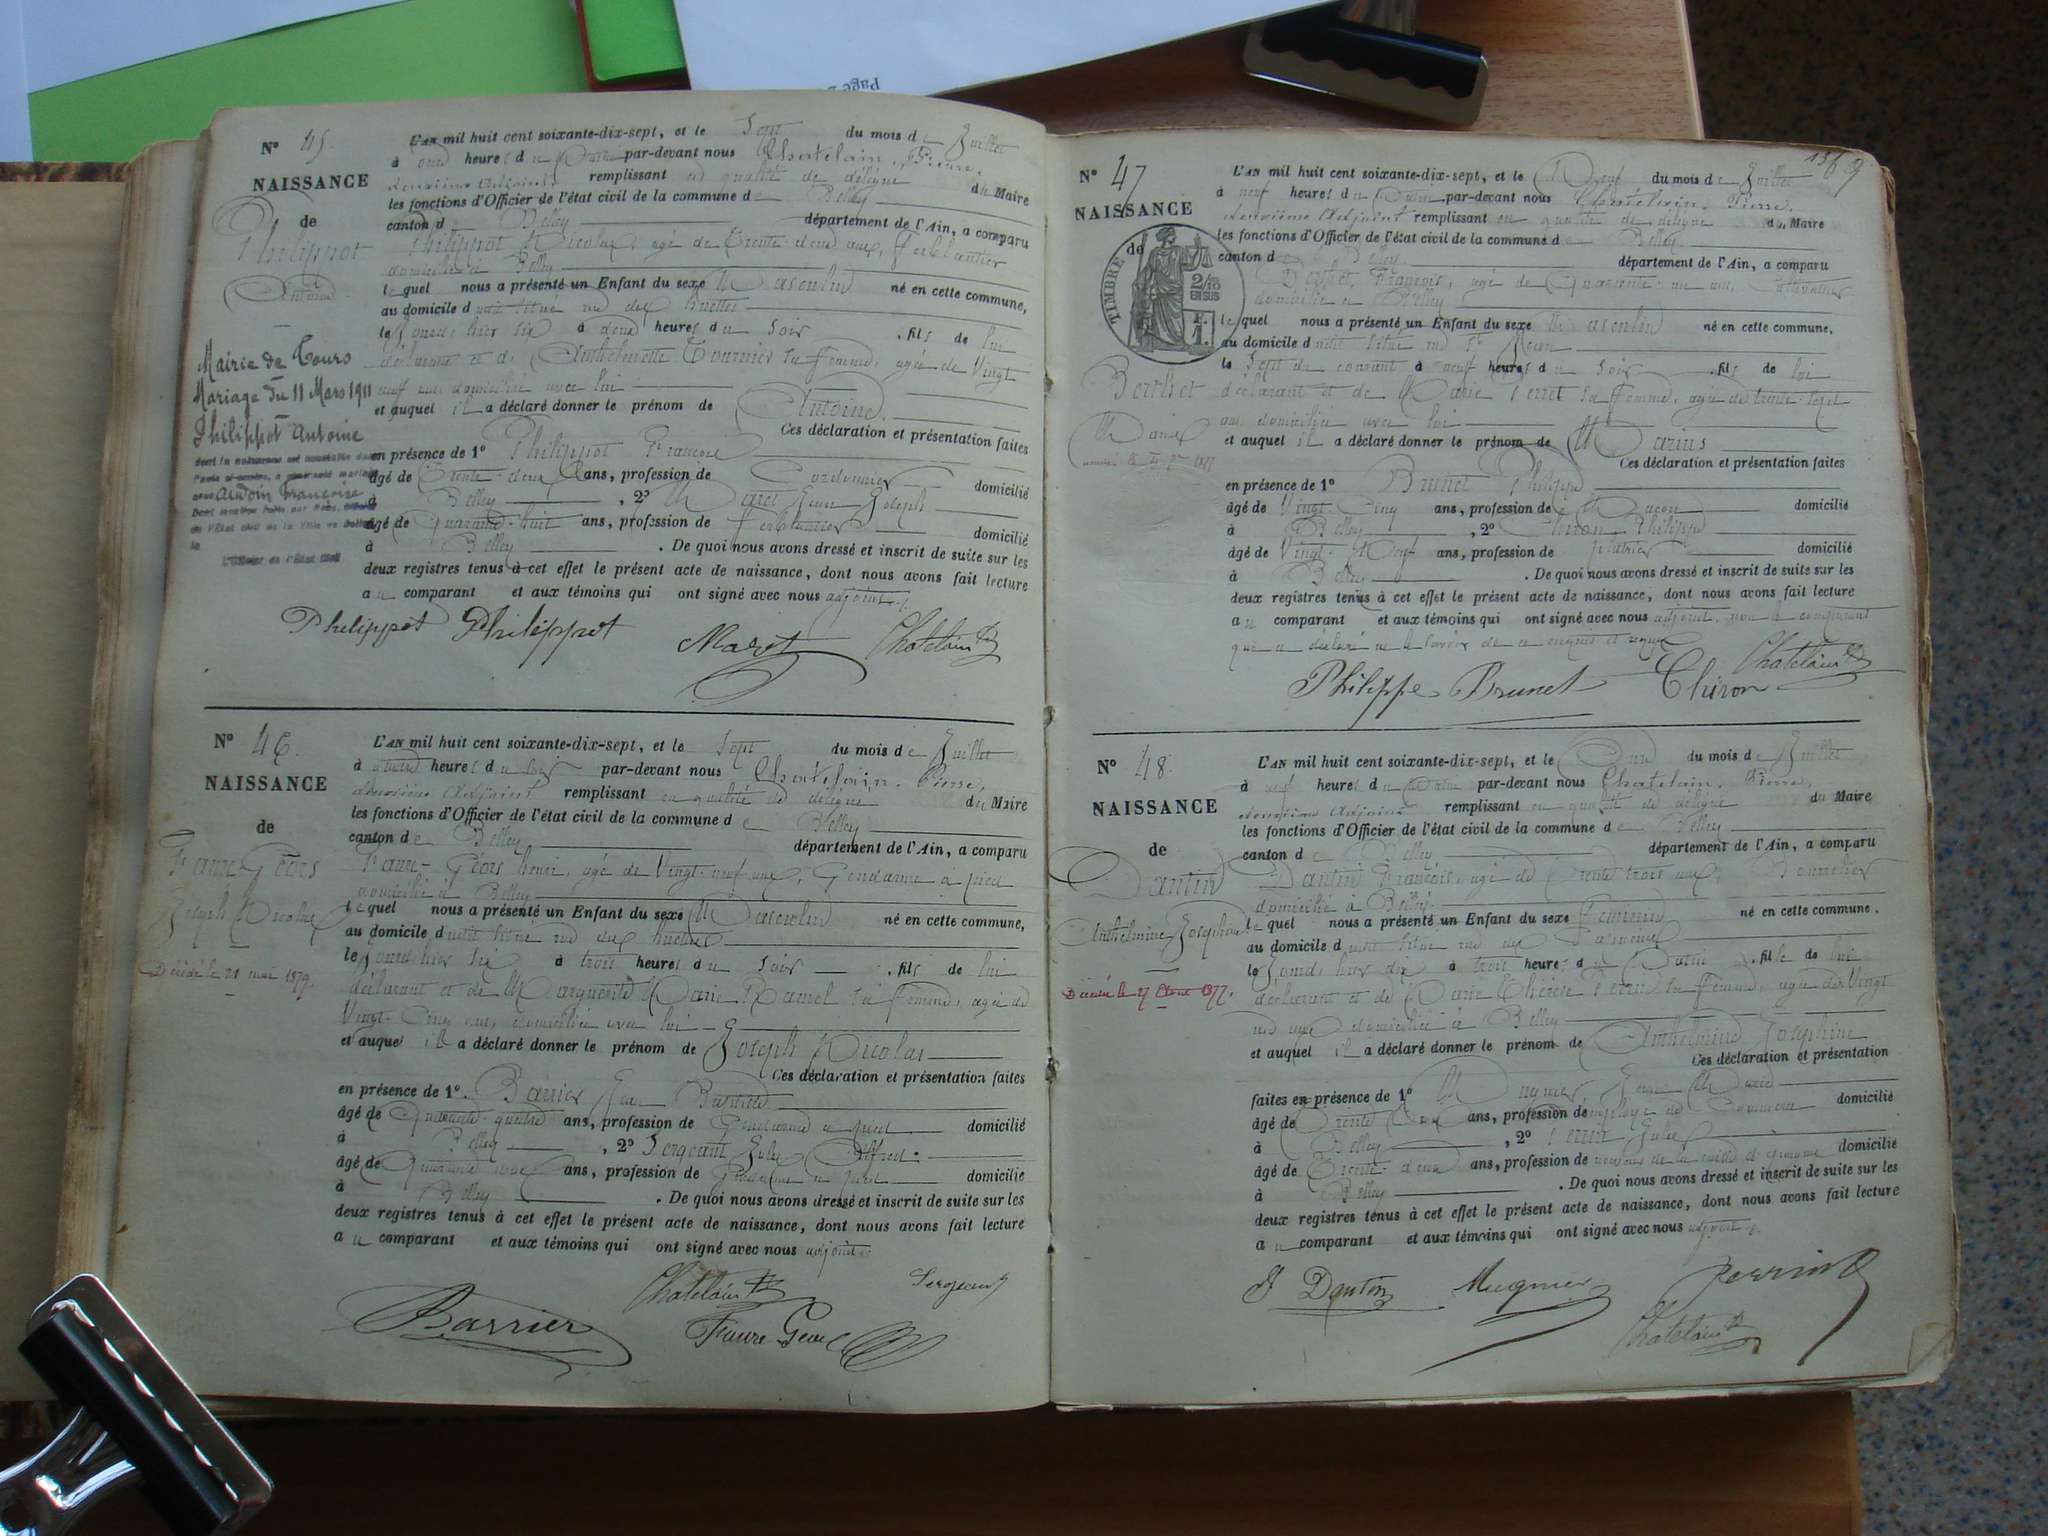 Page
N° 45.
NAISSANCE
de
Philippot
Antoine
Mairie de Tours
Mariage du 11 Mars 1911
Philippot Antoine
avec Audoin Françoise
L'Officier de l'État Civil
L'AN mil huit cent soixante-dix-sept, et le Sept du mois de Juillet
à onze heures du par-devant nous Chatelain, Pierre,
deuxième Adjoint remplissant en qualité de délégué du Maire
les fonctions d'Officier de l'état civil de la commune de Belley
canton de Belley département de l'Ain, a comparu
Philippot Nicolas, agé de Trente deux ans, Ferblantier
domicilié à Belley
lequel nous a présenté un Enfant du sexe Masculin né en cette commune,
au domicile dudit situé rue des
le jour d'hier six à deux heures du soir, fils de lui
déclarant et d'Anthelmette Tournier sa femme, agée de Vingt
neuf ans domiciliée avec lui
et auquel il a déclaré donner le prénom de Antoine.
Ces déclaration et présentation faites
en présence de 1° Philippot François
âgé de Trente-deux ans, profession de Cordonnier domicilié
à Belley, 2° Maret Jean Joseph
âgé de Quarante-huit ans, profession de Ferblantier domicilié
à Belley. De quoi nous avons dressé et inscrit de suite sur les
deux registres tenus à cet effet le présent acte de naissance, dont nous avons fait lecture
au comparant et aux témoins qui ont signé avec nous adjoint.
Philippot Philippot Maret Chatelain
N° 46.
NAISSANCE
de
Faure-Géors
Joseph Nicolas
Décédé le 21 mai 1879.
L'AN mil huit cent soixante-dix-sept, et le Sept du mois de Juillet
à quatre heures du soir par-devant nous Chatelain, Pierre,
deuxième Adjoint remplissant en qualité de délégué du Maire
les fonctions d'Officier de l'état civil de la commune de Belley
canton de Belley département de l'Ain, a comparu
Faure-Géors henri, agé de Vingt-neuf ans, Gendarme à pied
domicilié à Belley
lequel nous a présenté un Enfant du sexe Masculin né en cette commune,
au domicile dudit situé rue des
le jour d'hier six à trois heures du soir, fils de lui
déclarant et de Marguerite Marie Ramel sa femme, agée de
Vingt-Cinq ans, domiciliée avec lui
et auquel il a déclaré donner le prénom de Joseph Nicolas
Ces déclaration et présentation faites
en présence de 1°. Barrier Jean Baptiste
âgé de Quarante-quatre ans, profession de Gendarme à pied domicilié
à Belley, 2° Sergeant Jules Alfred
âgé de Quarante ans, profession de Gendarme à pied domicilié
à Belley. De quoi nous avons dressé et inscrit de suite sur les
deux registres tenus à cet effet le présent acte de naissance, dont nous avons fait lecture
au comparant et aux témoins qui ont signé avec nous adjoint.
Chatelain Sergeant
Barrier Faure Geors
136
N° 47
NAISSANCE
de
TIMBRE
2/10
EN SUS
Berthet
Marius
L'AN mil huit cent soixante-dix-sept, et le Neuf du mois de Juillet
à neuf heures du matin par-devant nous Chatelain, Pierre,
deuxième Adjoint remplissant en qualité de délégué du Maire
les fonctions d'Officier de l'état civil de la commune de Belley
canton de Belley département de l'Ain, a comparu
Berthet, François, agé de Quarante-un ans, Cultivateur
domicilié à Belley
lequel nous a présenté un Enfant du sexe Masculin né en cette commune,
au domicile dudit situé rue St Jean
le Sept du courant à neuf heures du soir, fils de lui
déclarant et de Marie Perret sa femme, agée de trente-sept
ans domiciliée avec lui
et auquel il a déclaré donner le prénom de Marius
Ces déclaration et présentation faites
en présence de 1° Brunet Philippe
âgé de Vingt-Cinq ans, profession de Maçon domicilié
à Belley, 2° Chiron Philippe
âgé de Vingt-Neuf ans, profession de platrier domicilié
à Belley. De quoi nous avons dressé et inscrit de suite sur les
deux registres tenus à cet effet le présent acte de naissance, dont nous avons fait lecture
au comparant et aux témoins qui ont signé avec nous adjoint, non le comparant
qui a déclaré ne le savoir de ce enquis et requis
Philippe Brunet Chiron Chatelain
N° 48.
NAISSANCE
de
Dantin
Anthelmine Josephine
Décédée le 27 Aout 1877.
L'AN mil huit cent soixante-dix-sept, et le Onze du mois de Juillet
à neuf heures du matin par-devant nous Chatelain, Pierre,
deuxième Adjoint remplissant en qualité de délégué du Maire
les fonctions d'Officier de l'état civil de la commune de Belley
canton de Belley département de l'Ain, a comparu
Dantin François, agé de Trente trois ans,
domicilié à Belley
lequel nous a présenté un Enfant du sexe Féminin né en cette commune,
au domicile dudit situé rue des
le jour d'hier dix à trois heures du matin, fille de lui
déclarant et de Marie Thérèse Perrin sa femme, agée de Vingt
ans domiciliée à Belley
et auquel il a déclaré donner le prénom de Anthelmine Josephine
Ces déclaration et présentation
faites en présence de 1° Mugnier, Jean Marie
âgé de Trente ans, profession de employé de Commerce domicilié
à Belley, 2° Perrin Jules
âgé de Trente deux ans, profession de receveur de la caisse d'épargne domicilié
à Belley. De quoi nous avons dressé et inscrit de suite sur les
deux registres tenus à cet effet le présent acte de naissance, dont nous avons fait lecture
au comparant et aux témoins qui ont signé avec nous adjoint.
Dantin Mugnier Perrin
Chatelain